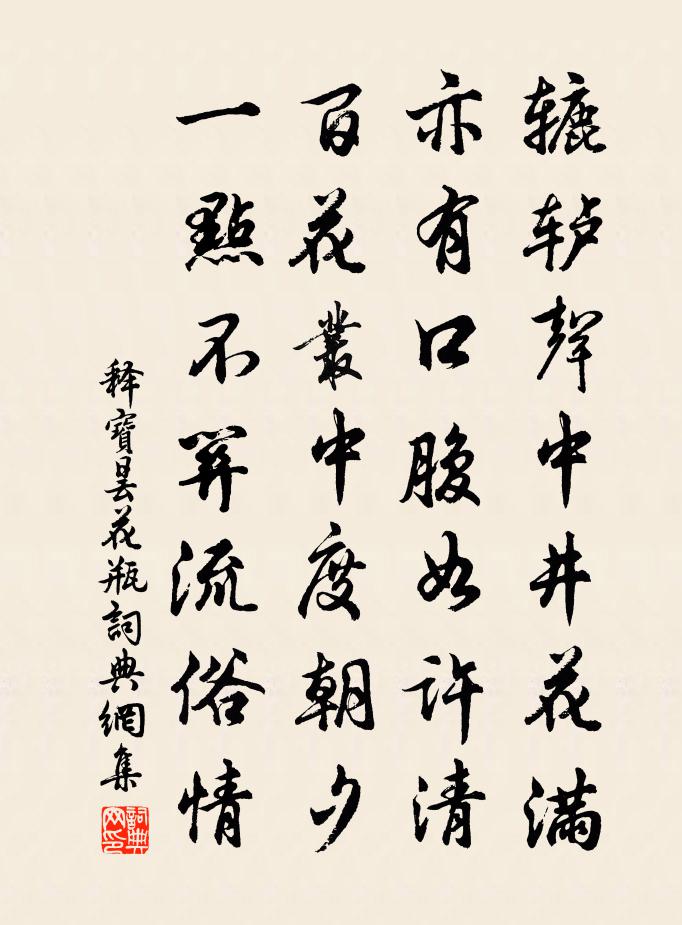 辘轳聲中井花滿
亦有口腹如許清
百花叢中度朝夕
一點不關流俗情
释寶曇花瓶詞典網集
詞典网印